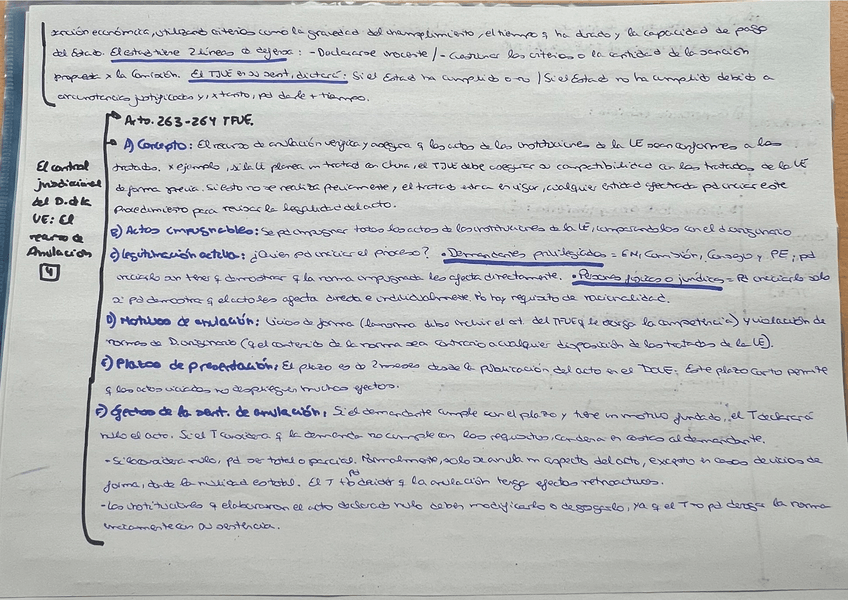 sanción económica, utilizando criterios como la gravedad del incumplimiento, el tiempo q ha durado y la capacidad de pago
del Estado. El estado tiene 2 líneas d defensa: - Declararse inocente / - Cuestionar los criterios o la cantidad de la sanción
propuesta x la Comisión. El TJUE en su sent, dictará: Si el Estado ha cumplido o no / Si el Estado no ha cumplido debido a
circunstancias justificadas y, x tanto, pd darle + tiempo.
Arto. 263-264 TFUE.
A) Concepto: El recurso de anulación verifica y asegura q los actos de las instituciones de la UE sean conformes a los
tratados. x ejemplo, si la UE planea un tratado con China, el TJUE debe asegurar su compatibilidad con los tratados de la UE
de forma previa. Si esto no se realiza previamente, y el tratado entra en vigor, cualquier entidad afectada pd iniciar este
procedimiento para revisar la legalidad del acto.
El control
jurisdiccional
del D. de la
UE: El
recurso de
Anulación
4
B) Actos impugnables: Se pd impugnar todos los actos de las instituciones de la UE, comparándolos con el d. originario
C) Legitimación activa: ¿Quién pd iniciar el proceso? • Demandantes privilegiados = EM, Comisión, Consejo y PE; pd
iniciarlo sin tener q demostrar q la norma impugnada les afecta directamente. • Personas físicas o jurídicas = Pd iniciarlo solo
si pd demostrar q el acto les afecta directa e individualmente. No hay requisito de nacionalidad.
D) Motivos de anulación: Vicios de forma (la norma debe incluir el art. del TFUE q le otorga la competencia) y violación de
normas de D. originario (q el contenido de la norma sea contrario a cualquier disposición de los tratados de la UE).
E) Plazos de presentación: El plazo es de 2 meses desde la publicación del acto en el DOUE. Este plazo corto permite
q los actos viciados no desplieguen muchos efectos.
F) Efectos de la sent. de anulación: Si el demandante cumple con el plazo y tiene un motivo fundado, el T declarará
nulo el acto. Si el T considera q la demanda no cumple con los requisitos, condena en costas al demandante.
- Si lo considera nulo, pd ser total o parcial. Normalmente, solo se anula un aspecto del acto, excepto en casos de vicios de
forma, donde la nulidad es total. El T tb pd decidir q la anulación tenga efectos retroactivos.
- Las instituciones q elaboraron el acto declarado nulo deben modificarlo o derogarlo, ya q el T no pd deroga la norma
únicamente con su sentencia.